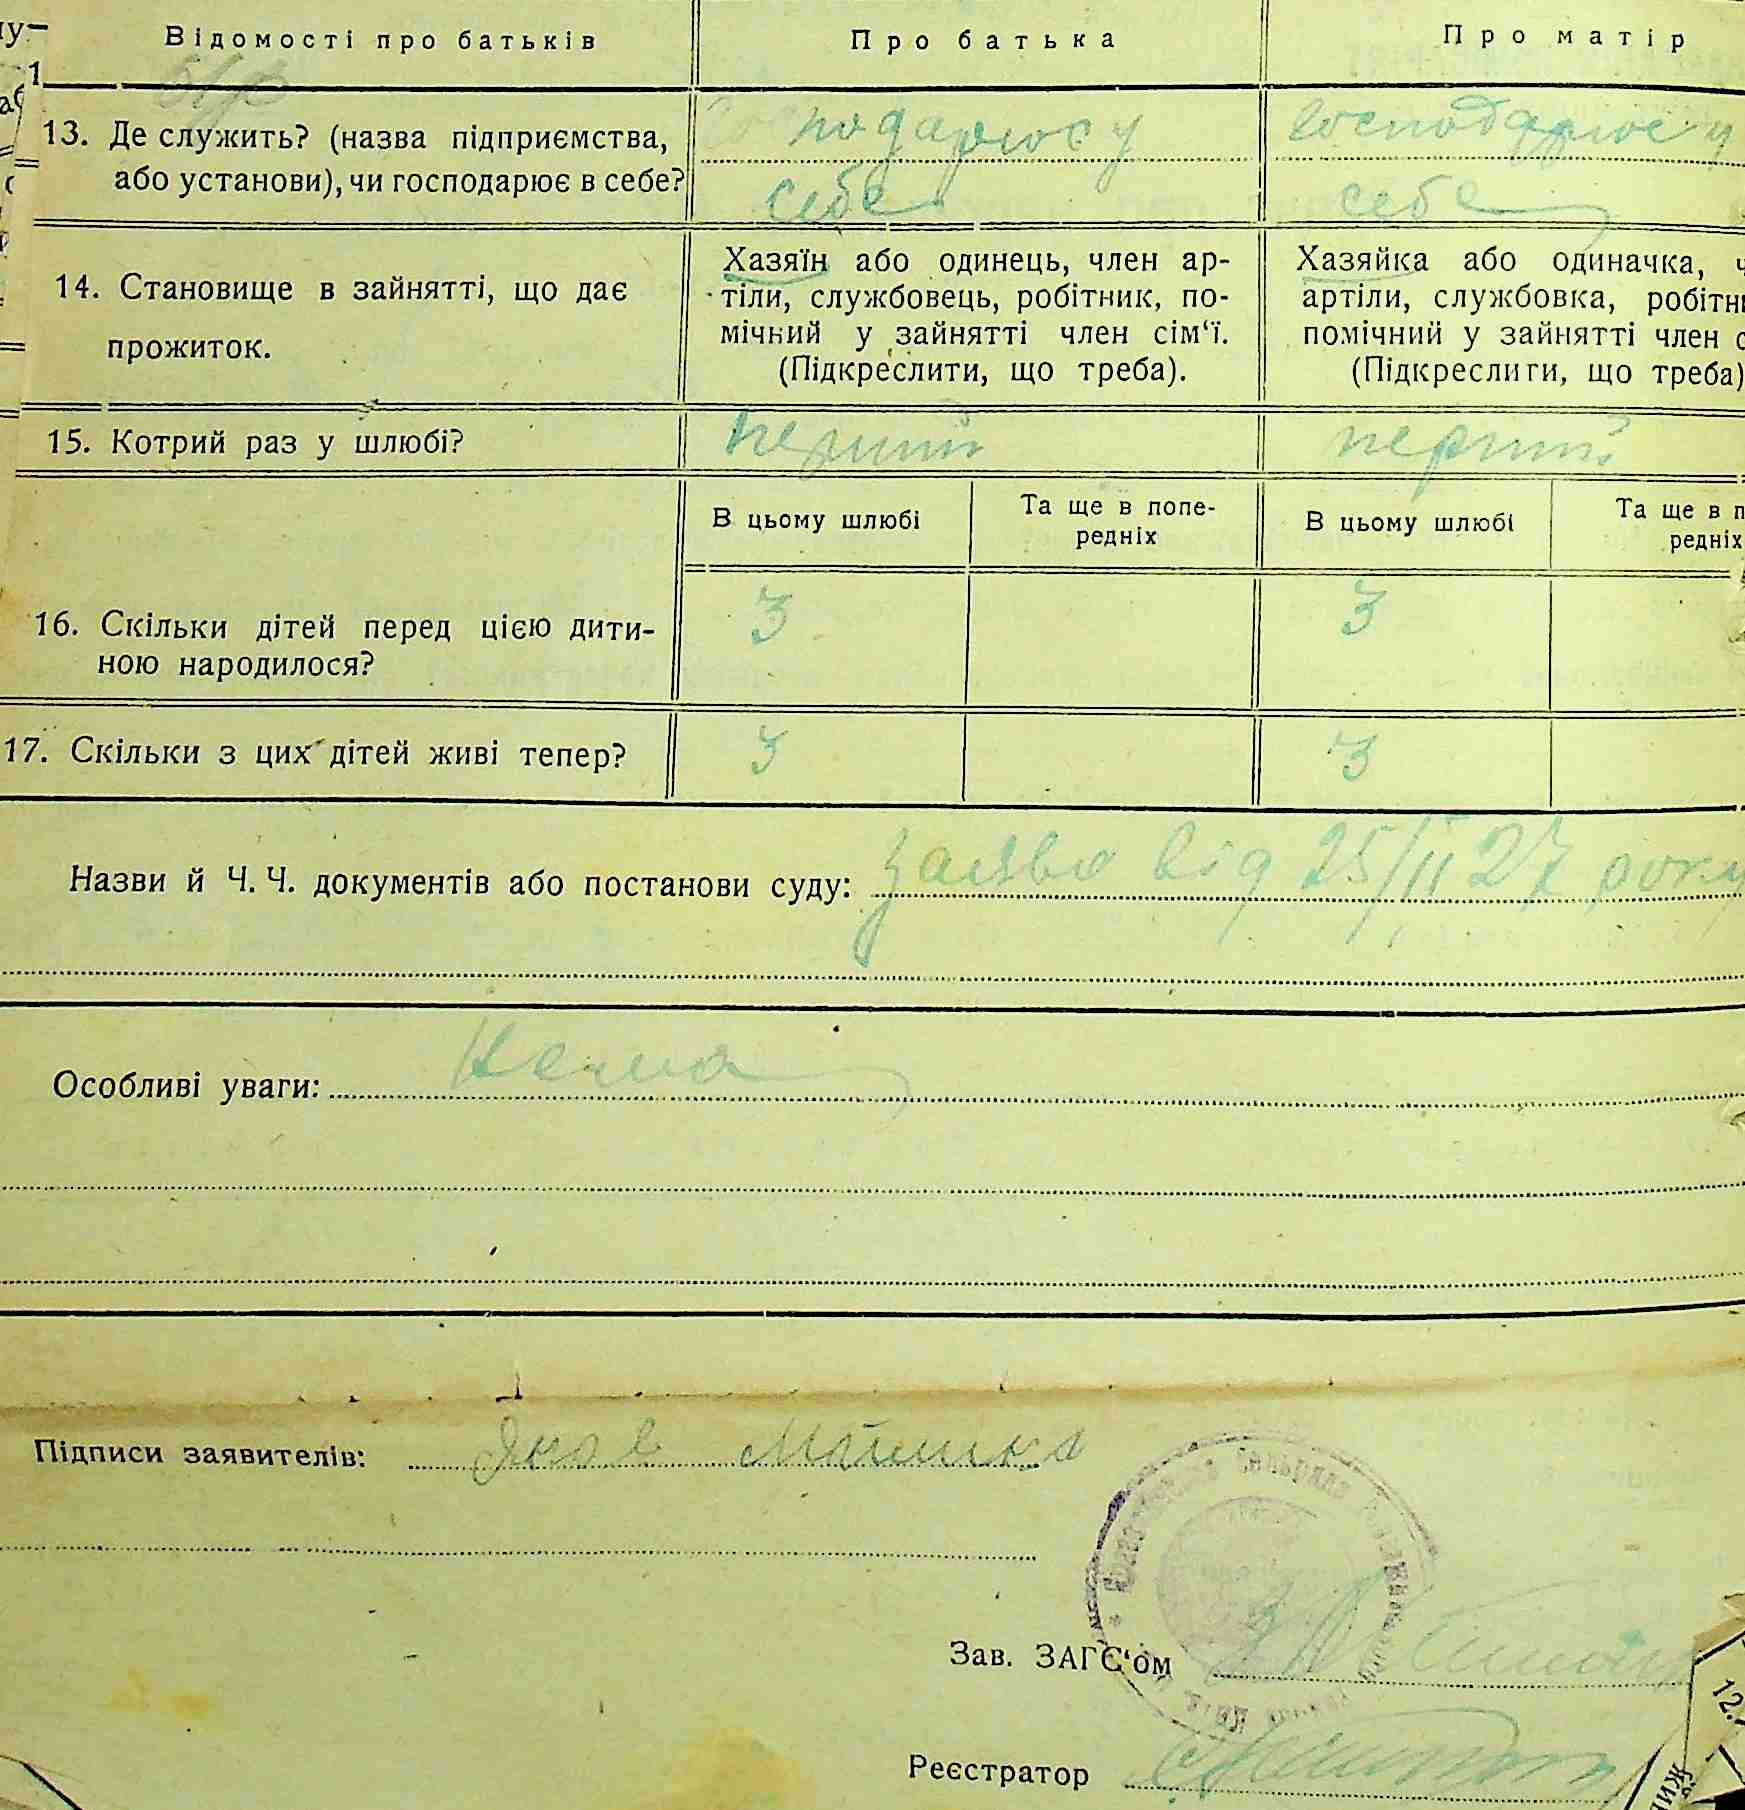 Відомості про батьків Про батька Про матір
13. Де служить? (назва підприємства, або установи), чи господарює в себе?
господарює у себе
господарює у себе
14. Становище в зайнятті, що дає прожиток.
Хазяїн або одинець, член ар-
тіли, службовець, робітник, по-
мічний у зайнятті член сім‘ї.
(Підкреслити, що треба).
Хазяйка або одиначка,
артіли, службовка,
помічний у зайнятті член
(Підкреслити, що треба)
15. Котрий раз у шлюбі? перший перший
В цьому шлюбі Та ще в попе-
редніх
В цьому шлюбі Та ще в
редніх
16. Скільки дітей перед цією дити-
ною народилося? 3 3
17. Скільки з цих дітей живі тепер? 3 3
Назви й Ч. Ч. документів або постанови суду: заява від 25/II 27 року
Особливі уваги: Нема
Підписи заявителів: Яков
Зав. ЗАГС‘ом
Реєстратор